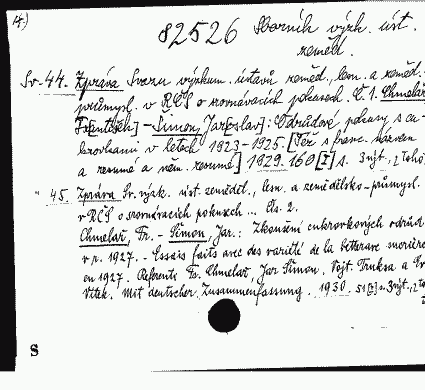 4)
82526 Sborník výzk. úst.
zeměd.
Sv. 44. Zpráva Svazu výzkum. ústavů zeměd., lesn. a zeměd.
průmysl. v RČS o srovnávacích pokusech. Č. 1. Chmelař
František] - Simon, Jar[oslav]: Odrůdové pokusy s cu-
krovkami v letech 1923-1925. [Též s franc. názvem
a resumé a něm. resumé] 1929. 160 [I] s.
" 45. Zpráva Sv. výzk. úst. zeměděl., lesn. a zemědělsko-průmysl.
v RČS o srovnávacích pokusech ... Čís. 2.
Chmelař, Fr. - Simon, Jar.: Zkoušení cukrovkových odrůd
v r. 1927. - Essais faits avec des variétés de la betterave
en 1927. Referenti Fr. Chmelař, Jar Simon, Vojt. Truksa a
Vítek. Mit deutscher Zusammenfassung. 1930.
S